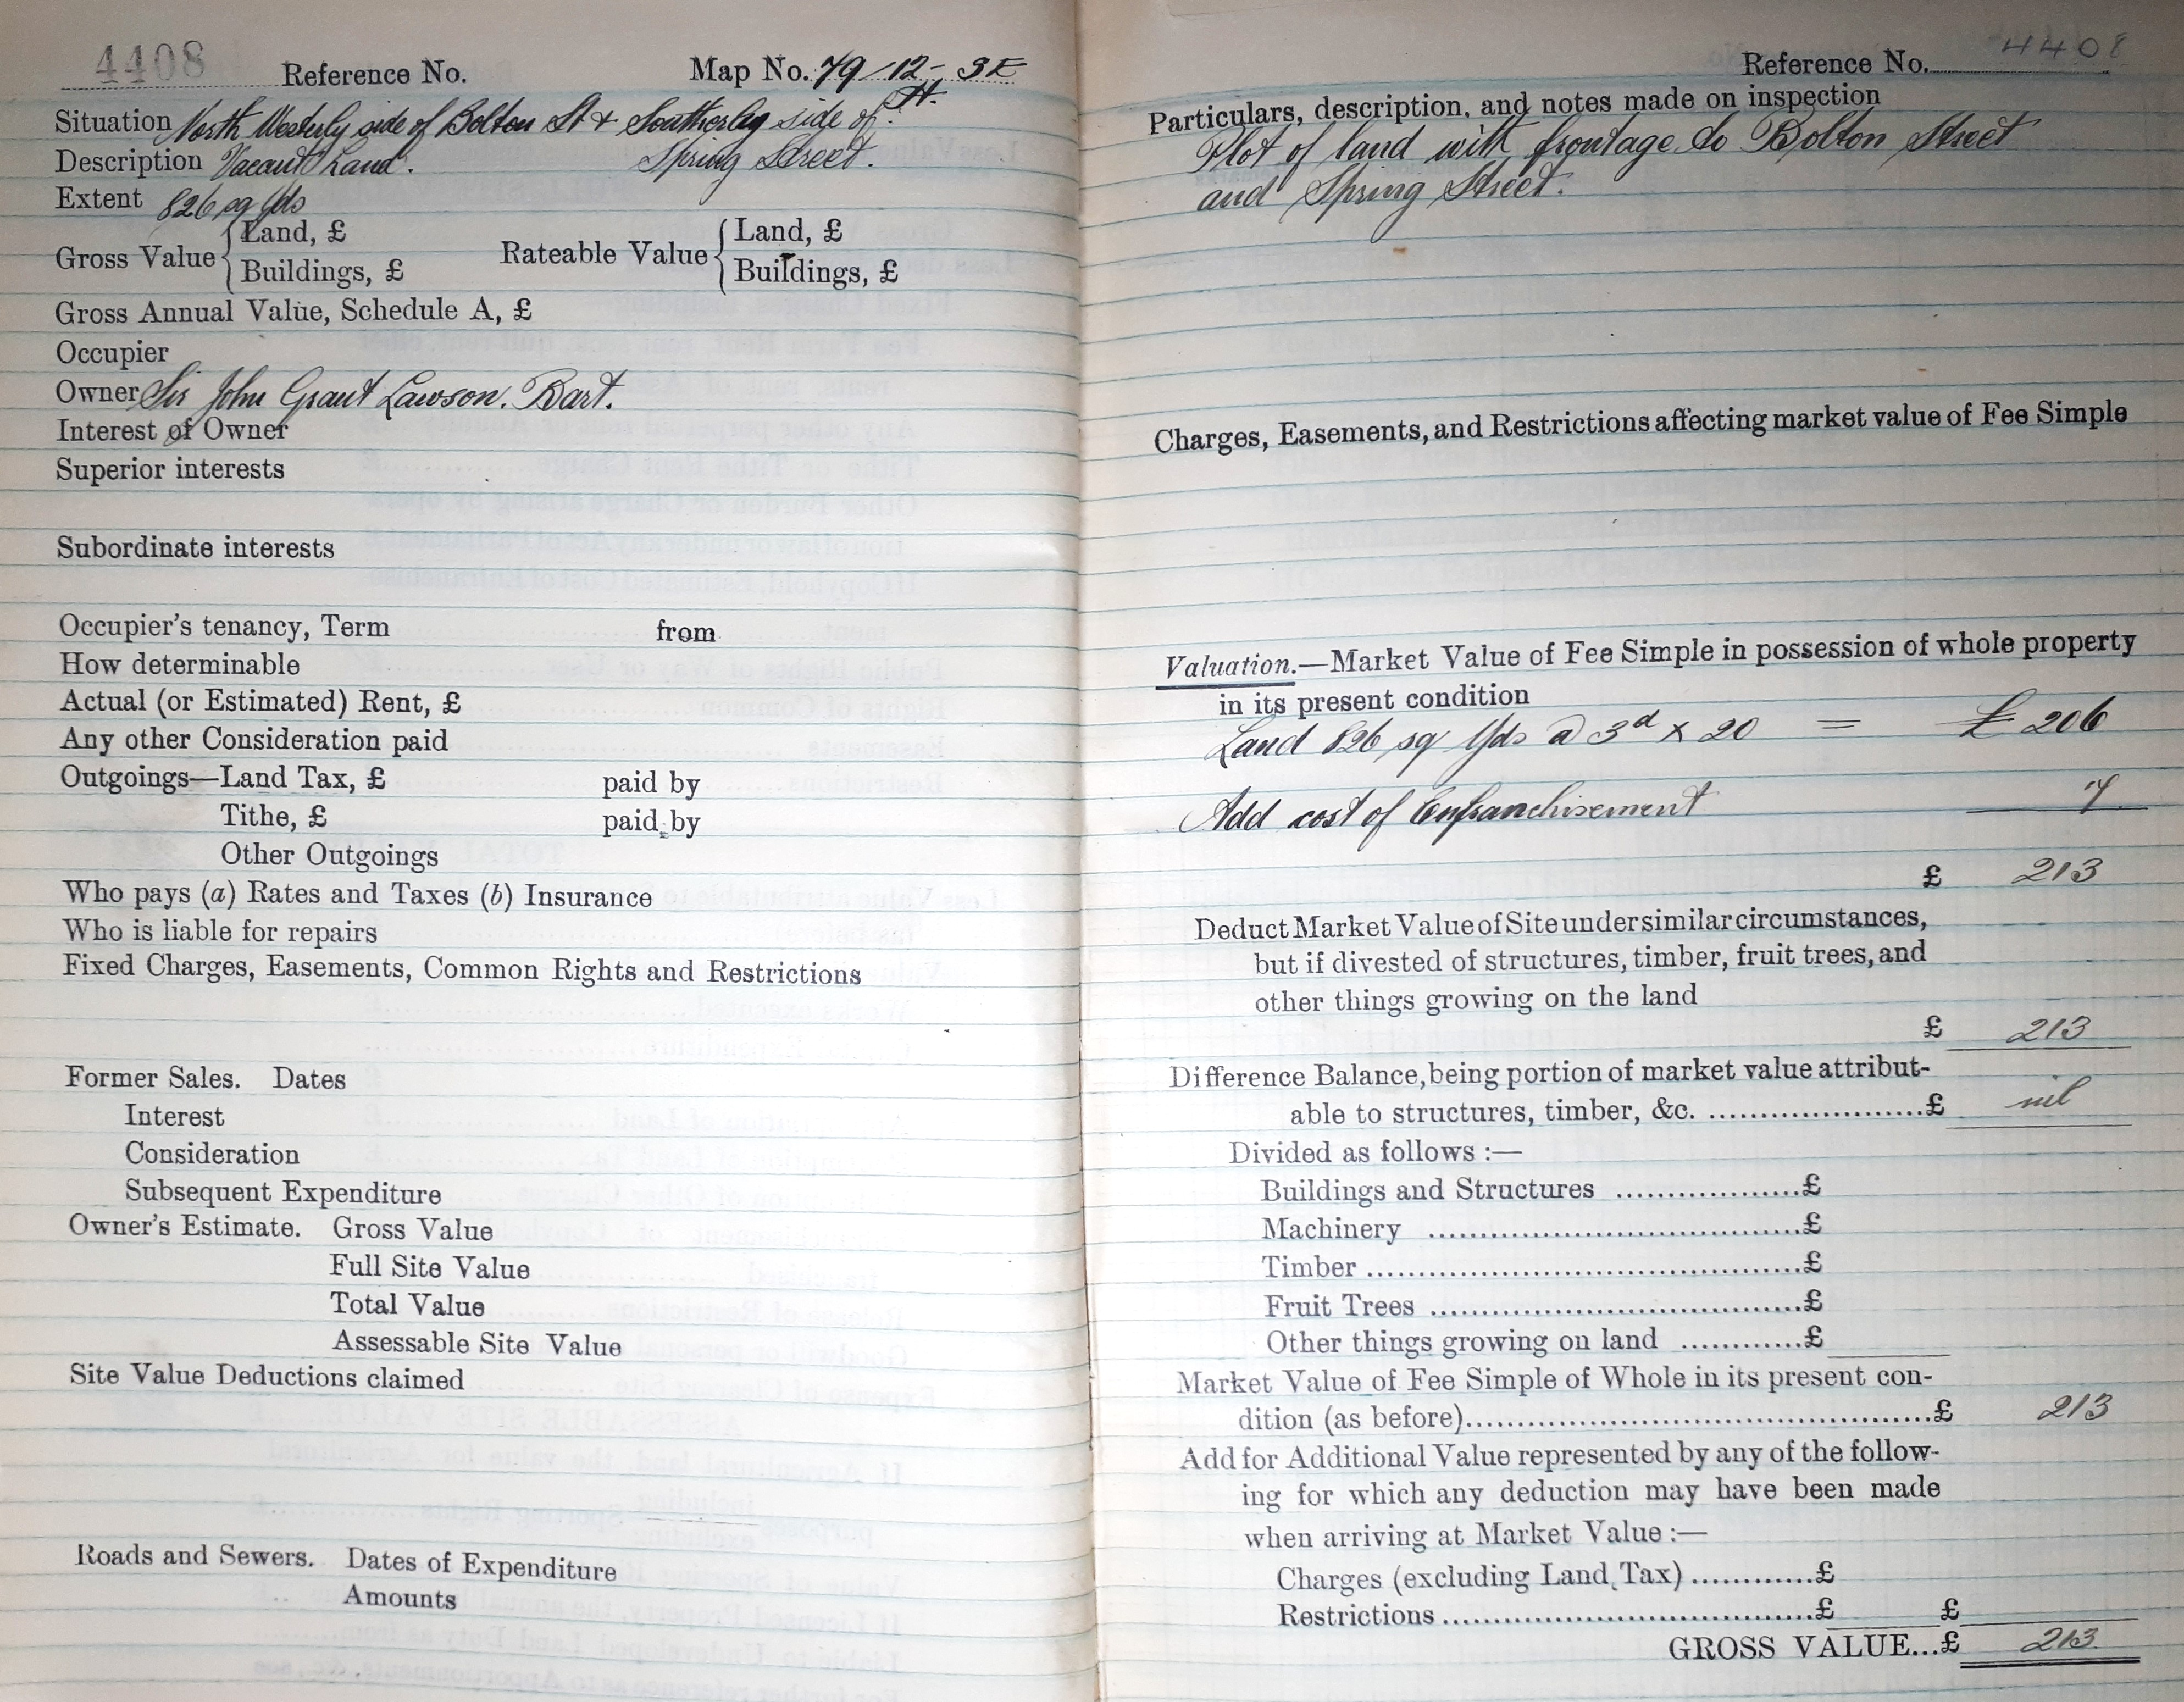 4408 Reference No. Map No. 79/12- 3E
Situation North Westerly side of Bolton St & Southerly side of
Description Vacant Land. Spring Street.
Extent 826 sq yds
Gross Value { Land, £ Rateable Value { Land, £
Buildings, £ Buildings, £
Gross Annual Value, Schedule A, £
Occupier
Owner Sir John Grant Lawson. Bart.
Interest of Owner
Superior interests
Subordinate interests
Occupier's tenancy, Term from
How determinable
Actual (or Estimated) Rent, £
Any other Consideration paid
Outgoings—Land Tax, £ paid by
Tithe, £ paid by
Other Outgoings
Who pays (a) Rates and Taxes (b) Insurance
Who is liable for repairs
Fixed Charges, Easements, Common Rights and Restrictions
Former Sales. Dates
Interest
Consideration
Subsequent Expenditure
Owner's Estimate. Gross Value
Full Site Value
Total Value
Assessable Site Value
Site Value Deductions claimed
Roads and Sewers. Dates of Expenditure
Amounts
Reference No. 4408
Particulars, description, and notes made on inspection
Plot of land with frontage to Bolton Street
and Spring Street.
Charges, Easements, and Restrictions affecting market value of Fee Simple
Valuation.—Market Value of Fee Simple in possession of whole property
in its present condition
Land 826 sq yds @ 3d x 20 = £ 206
Add cost of Enfranchisement 7
£ 213
Deduct Market Value of Site under similar circumstances,
but if divested of structures, timber, fruit trees, and
other things growing on the land
£ 213
Difference Balance, being portion of market value attribut-
able to structures, timber, &c. ......................£ nil
Divided as follows :—
Buildings and Structures ...................£
Machinery ......................................£
Timber .............................................£
Fruit Trees ......................................£
Other things growing on land ............£
Market Value of Fee Simple of Whole in its present con-
dition (as before)................................................£ 213
Add for Additional Value represented by any of the follow-
ing for which any deduction may have been made
when arriving at Market Value :—
Charges (excluding Land Tax) ............£
Restrictions ......................................£ £
GROSS VALUE...£ 213